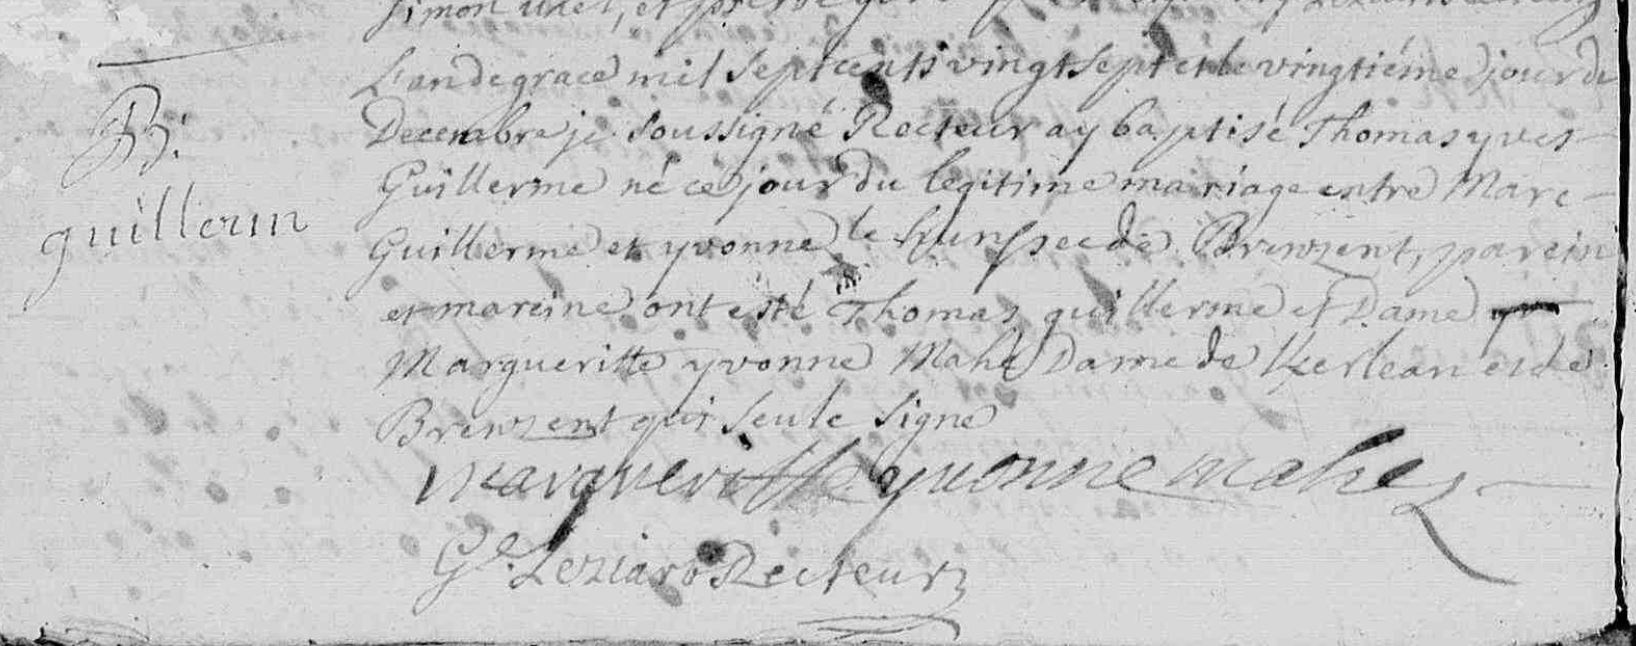 Simon
L'an de grace mil sept cents vingt sept et le vingtiéme jour de
B.
Decembre je soussigné Recteur ay baptisé Thomas yves
Guillerme né ce jour du legitime mariage entre Marc
guillerm
Guillerme et yvonne le de Brenzent, parein
et mareine ont esté Thomas guillerme et Dame
Margueritte yvonne Mahé Dame de Kerlean et de
Brenzent qui seule signe
Margueritte yvonne mahe
Ge. Leziaro Recteur